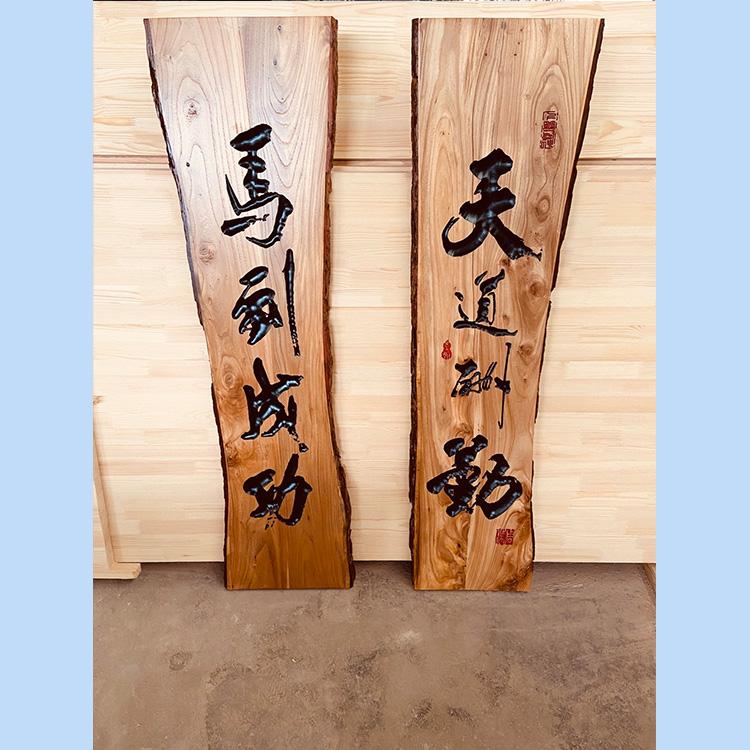 天道酬勤
马到成功